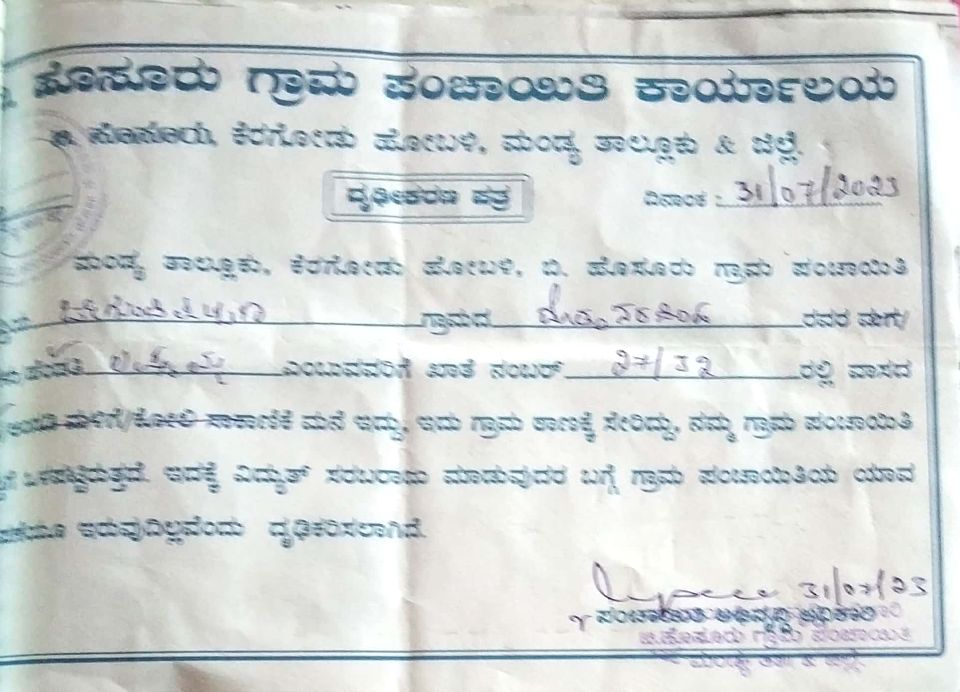 ಬಿ. ಹೊಸೂರು ಗ್ರಾಮ ಪಂಚಾಯಿತಿ ಕಾರ್ಯಾಲಯ
ಬಿ. ಹೊಸೂರು, ಕೆರಗೋಡು ಹೋಬಳಿ, ಮಂಡ್ಯ ತಾಲ್ಲೂಕು & ಜಿಲ್ಲೆ.
ದೃಢೀಕರಣ ಪತ್ರ
ದಿನಾಂಕ : 31/07/2023
ಮಂಡ್ಯ ತಾಲ್ಲೂಕು, ಕೆರಗೋಡು ಹೋಬಳಿ, ಬಿ. ಹೊಸೂರು ಗ್ರಾಮ ಪಂಚಾಯಿತಿ
ಗ್ರಾಮದ ರವರ ಮಗ/
ಎಂಬುವವರಿಗೆ ಖಾತೆ ನಂಬರ್ 27/32 ರಲ್ಲಿ ವಾಸದ
ಸಾಕಾಣಿಕೆ ಮನೆ ಇದ್ದು, ಇದು ಗ್ರಾಮ ಠಾಣಕ್ಕೆ ಸೇರಿದ್ದು, ನಮ್ಮ ಗ್ರಾಮ ಪಂಚಾಯಿತಿ
ಒಳಪಟ್ಟಿರುತ್ತದೆ. ಇದಕ್ಕೆ ವಿದ್ಯುತ್ ಸರಬರಾಜು ಮಾಡುವುದರ ಬಗ್ಗೆ ಗ್ರಾಮ ಪಂಚಾಯಿತಿಯ ಯಾವ
ಇರುವುದಿಲ್ಲವೆಂದು ದೃಢಿಕರಿಸಲಾಗಿದೆ.
31/07/23
ಪಂಚಾಯಿತಿ ಅಭಿವೃದ್ಧಿ ಅಧಿಕಾರಿ
ಬಿ.ಹೊಸೂರು ಗ್ರಾಮ ಪಂಚಾಯಿತಿ
ಮಂಡ್ಯ ತಾ & ಜಿಲ್ಲೆ.